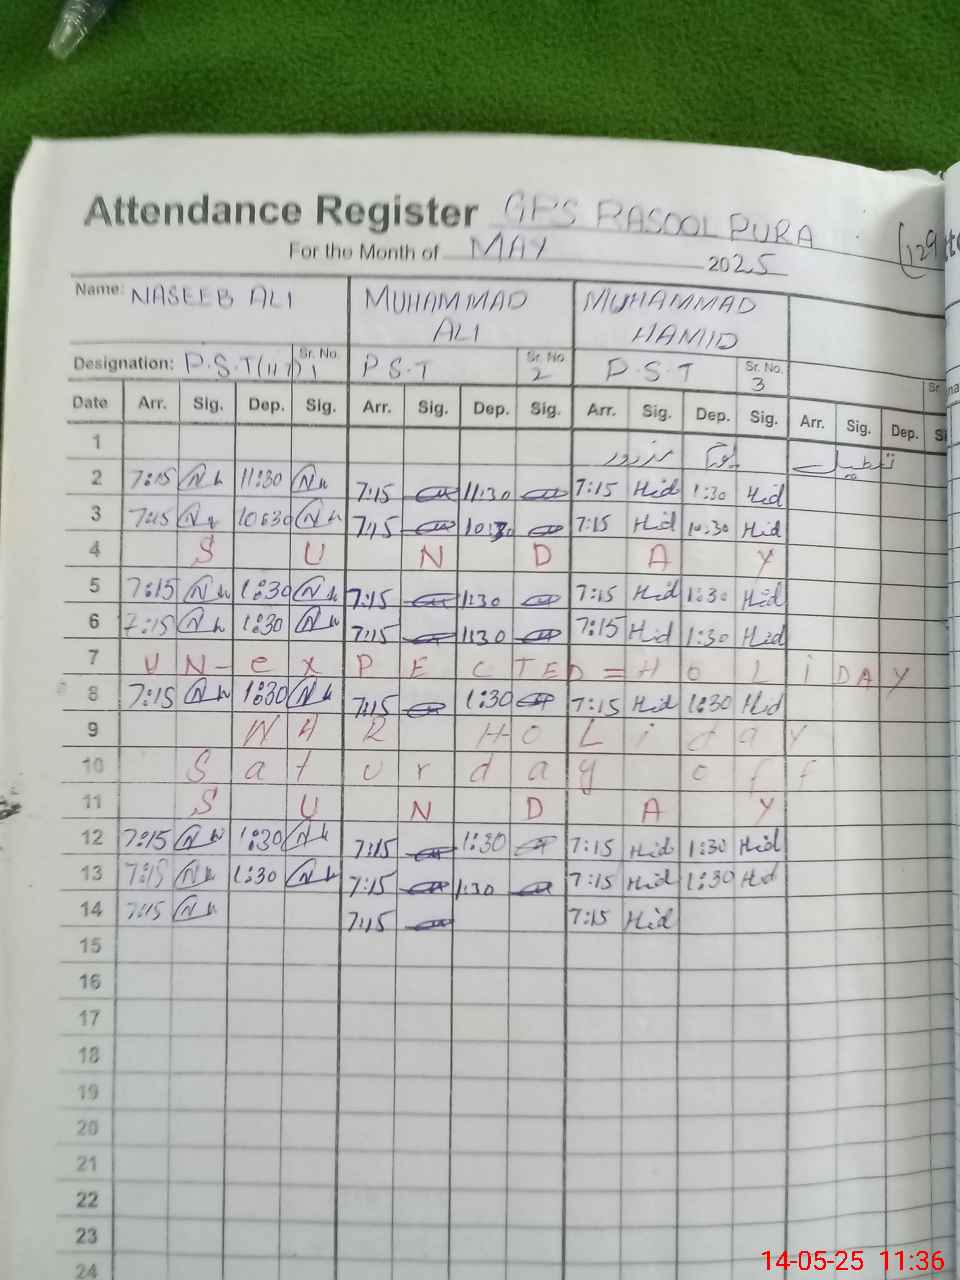 Attendance Register GPS RASOOL PURA
For the Month of MAY 2025
Name: NASEEB ALI MUHAMMAD ALI MUHAMMAD HAMID
Designation: P.S.T Sr. No. 1 P S.T Sr. No. 2 P.S.T Sr. No. 3
Date Arr. Sig. Dep. Sig. Arr. Sig. Dep. Sig. Arr. Sig. Dep. Sig. Arr. Sig. Dep.
1 تعطیل
2 7:15 11:30 7:15 11:30 7:15 Hid 1:30 Hid
3 7:15 10:30 7:15 10:30 7:15 Hid 10:30 Hid
4 S U N D A Y
5 7:15 1:30 7:15 1:30 7:15 Hid 1:30 Hid
6 7:15 1:30 7:15 1:30 7:15 Hid 1:30 Hid
7 UN-exPECTED=HOLiDAY
8 7:15 1:30 7:15 1:30 7:15 Hid 1:30 Hid
9 WAR HoLiday
10 Saturday off
11 S U N D A Y
12 7:15 1:30 7:15 1:30 7:15 Hid 1:30 Hid
13 7:15 1:30 7:15 1:30 7:15 Hid 1:30 Hid
14 7:15 7:15 7:15 Hid
15
16
17
18
19
20
21
22
23
24
14-05-25 11:36